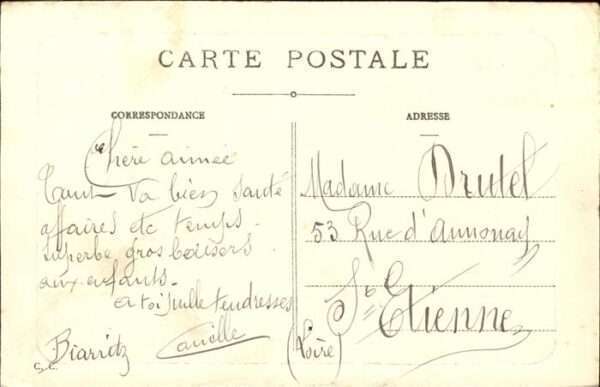 CARTE POSTALE
CORRESPONDANCE
ADRESSE
Chère aimée
Tout va bien santé
affaires etc temps
superbe gros baisers
aux enfants.
a toi mille tendresses
Biarritz
Madame Drutel
53 Rue d'Annonay
St Etienne
(Loire)